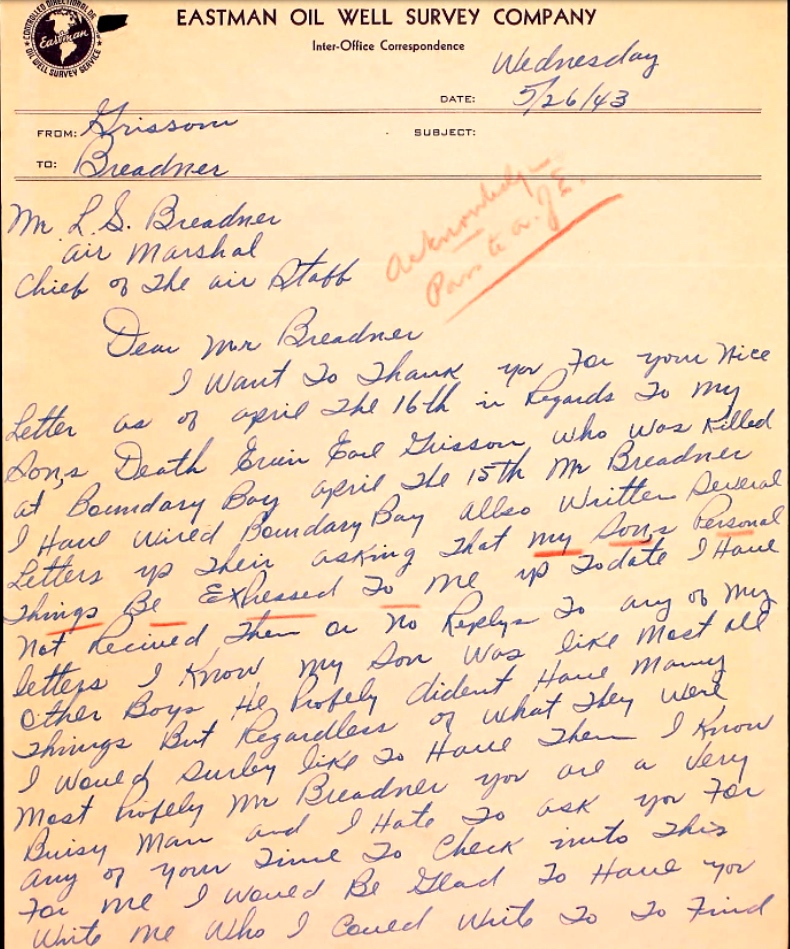 CONTROLLED DIRECTIONAL DR
Eastman
OIL WELL SURVEY SERVICE
EASTMAN OIL WELL SURVEY COMPANY
Inter-Office Correspondence
Wednesday
DATE: 5/26/43
FROM: Grissom
SUBJECT:
TO: Breadner
Acknowledge
Pass to a.J.E.
Mr L.S. Breadner
air Marshal
Chief of The air Staff
Dear Mr Breadner
I Want To Thank you For your Nice
Letter as of april The 16th in Regards To My
Son,s Death Ervin Earl Grissom, who was Killed
at Boundary Bay april The 15th Mr Breadner
I Have wired Boundary Bay allso Written Several
Letters up Their asking That my Son,s Personal
Things Be Expressed To Me up Todate I Have
Not Recived Them or No Replys To any of My
letters I Know my Son was like Most all
other Boys He Probely dident Have Many
Things But Regardless of what They were
I Would Surley like To Have Them I Know
Most Probely Mr Breadner you are a very
Buisy Man and I Hate To ask you For
any of your Time To Check into This
For me I would Be Glad To Have you
Write Me Who I Could Write To To Find